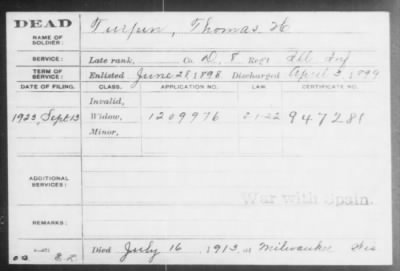 DEAD
NAME OF SOLDIER: Turpin, Thomas H
SERVICE: Late rank, Co. D, 8 Reg't Ill Inf
TERM OF SERVICE: Enlisted June 28 1898 Discharged April 3, 1899
DATE OF FILING. CLASS. APPLICATION NO. LAW. CERTIFICATE NO.
Invalid,
1923, Sept 13 Widow, 1209976 2-1-22 947281
Minor,
ADDITIONAL SERVICES:
War with Spain.
REMARKS:
Died July 16, 1913, at Milwaukee Wis